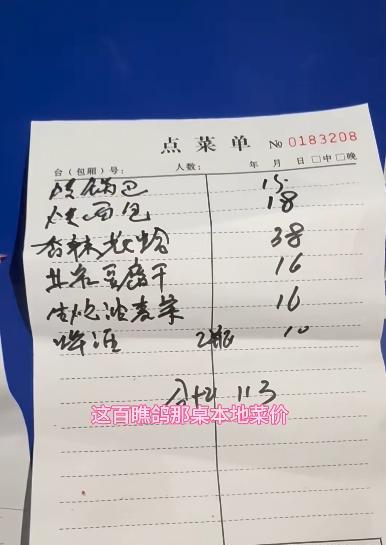 点菜单 No 0183208
台(包厢)号: 人数: 年 月 日 □中□晚
锅巴 15
面包 18
香辣花蛤 38
豆腐干 16
油麦菜 16
啤酒 2瓶 10
合计 113
这百瞧鸽那桌本地菜价